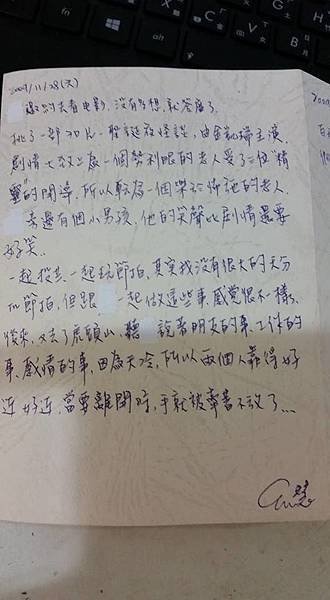 2009/11/28
邀約去看电影,沒有多想,就答應了.
挑了一部3D片-聖誕夜怪譚,由金凱瑞主演,
劇情大致上為一個勢利眼的老人受了三位精
靈的開導,所以轉為一個樂於佈施的老人.
旁邊有個小男孩,他的笑聲比劇情還要
好笑..
一起投 一起玩節拍,其實我沒有很大的天分
節拍,但跟 一起做這些事,感覺很不一樣.
後來,又去了虎頭山 聽 說著明天的事.工作的
事.感情的事,因為天冷,所以兩個人靠得好
近好近,當要離開時,手就被牽著不放了...